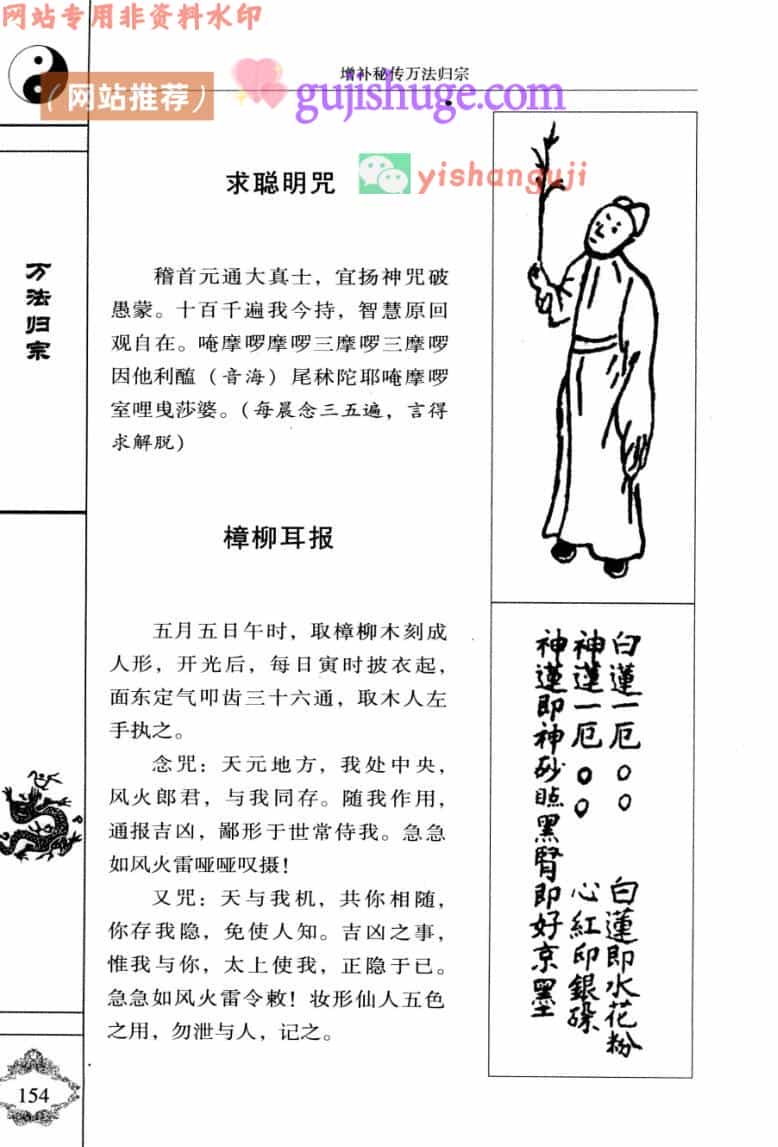 网站专用非资料水印
增补秘传万法归宗
（网站推荐）
gujishuge.com
yishanguji
万法归宗
求聪明咒
稽首元通大真士，宜扬神咒破
愚蒙。十百千遍我今持，智慧原回
观自在。唵摩啰摩啰三摩啰三摩啰
因他利醢（音海）尾秫陀耶唵摩啰
室哩曳莎婆。（每晨念三五遍，言得
求解脱）
樟柳耳报
五月五日午时，取樟柳木刻成
人形，开光后，每日寅时披衣起，
面东定气叩齿三十六通，取木人左
手执之。
念咒：天元地方，我处中央，
风火郎君，与我同存。随我作用，
通报吉凶，鄙形于世常侍我。急急
如风火雷哑哑叹摄！
又咒：天与我机，共你相随，
你存我隐，免使人知。吉凶之事，
惟我与你，太上使我，正隐于已。
急急如风火雷令敕！妆形仙人五色
之用，勿泄与人，记之。
白蓮一厄○○ 白蓮即水花粉
神蓮一厄○○ 心紅印銀硃
神蓮即神砂 黑腎即好京墨
154